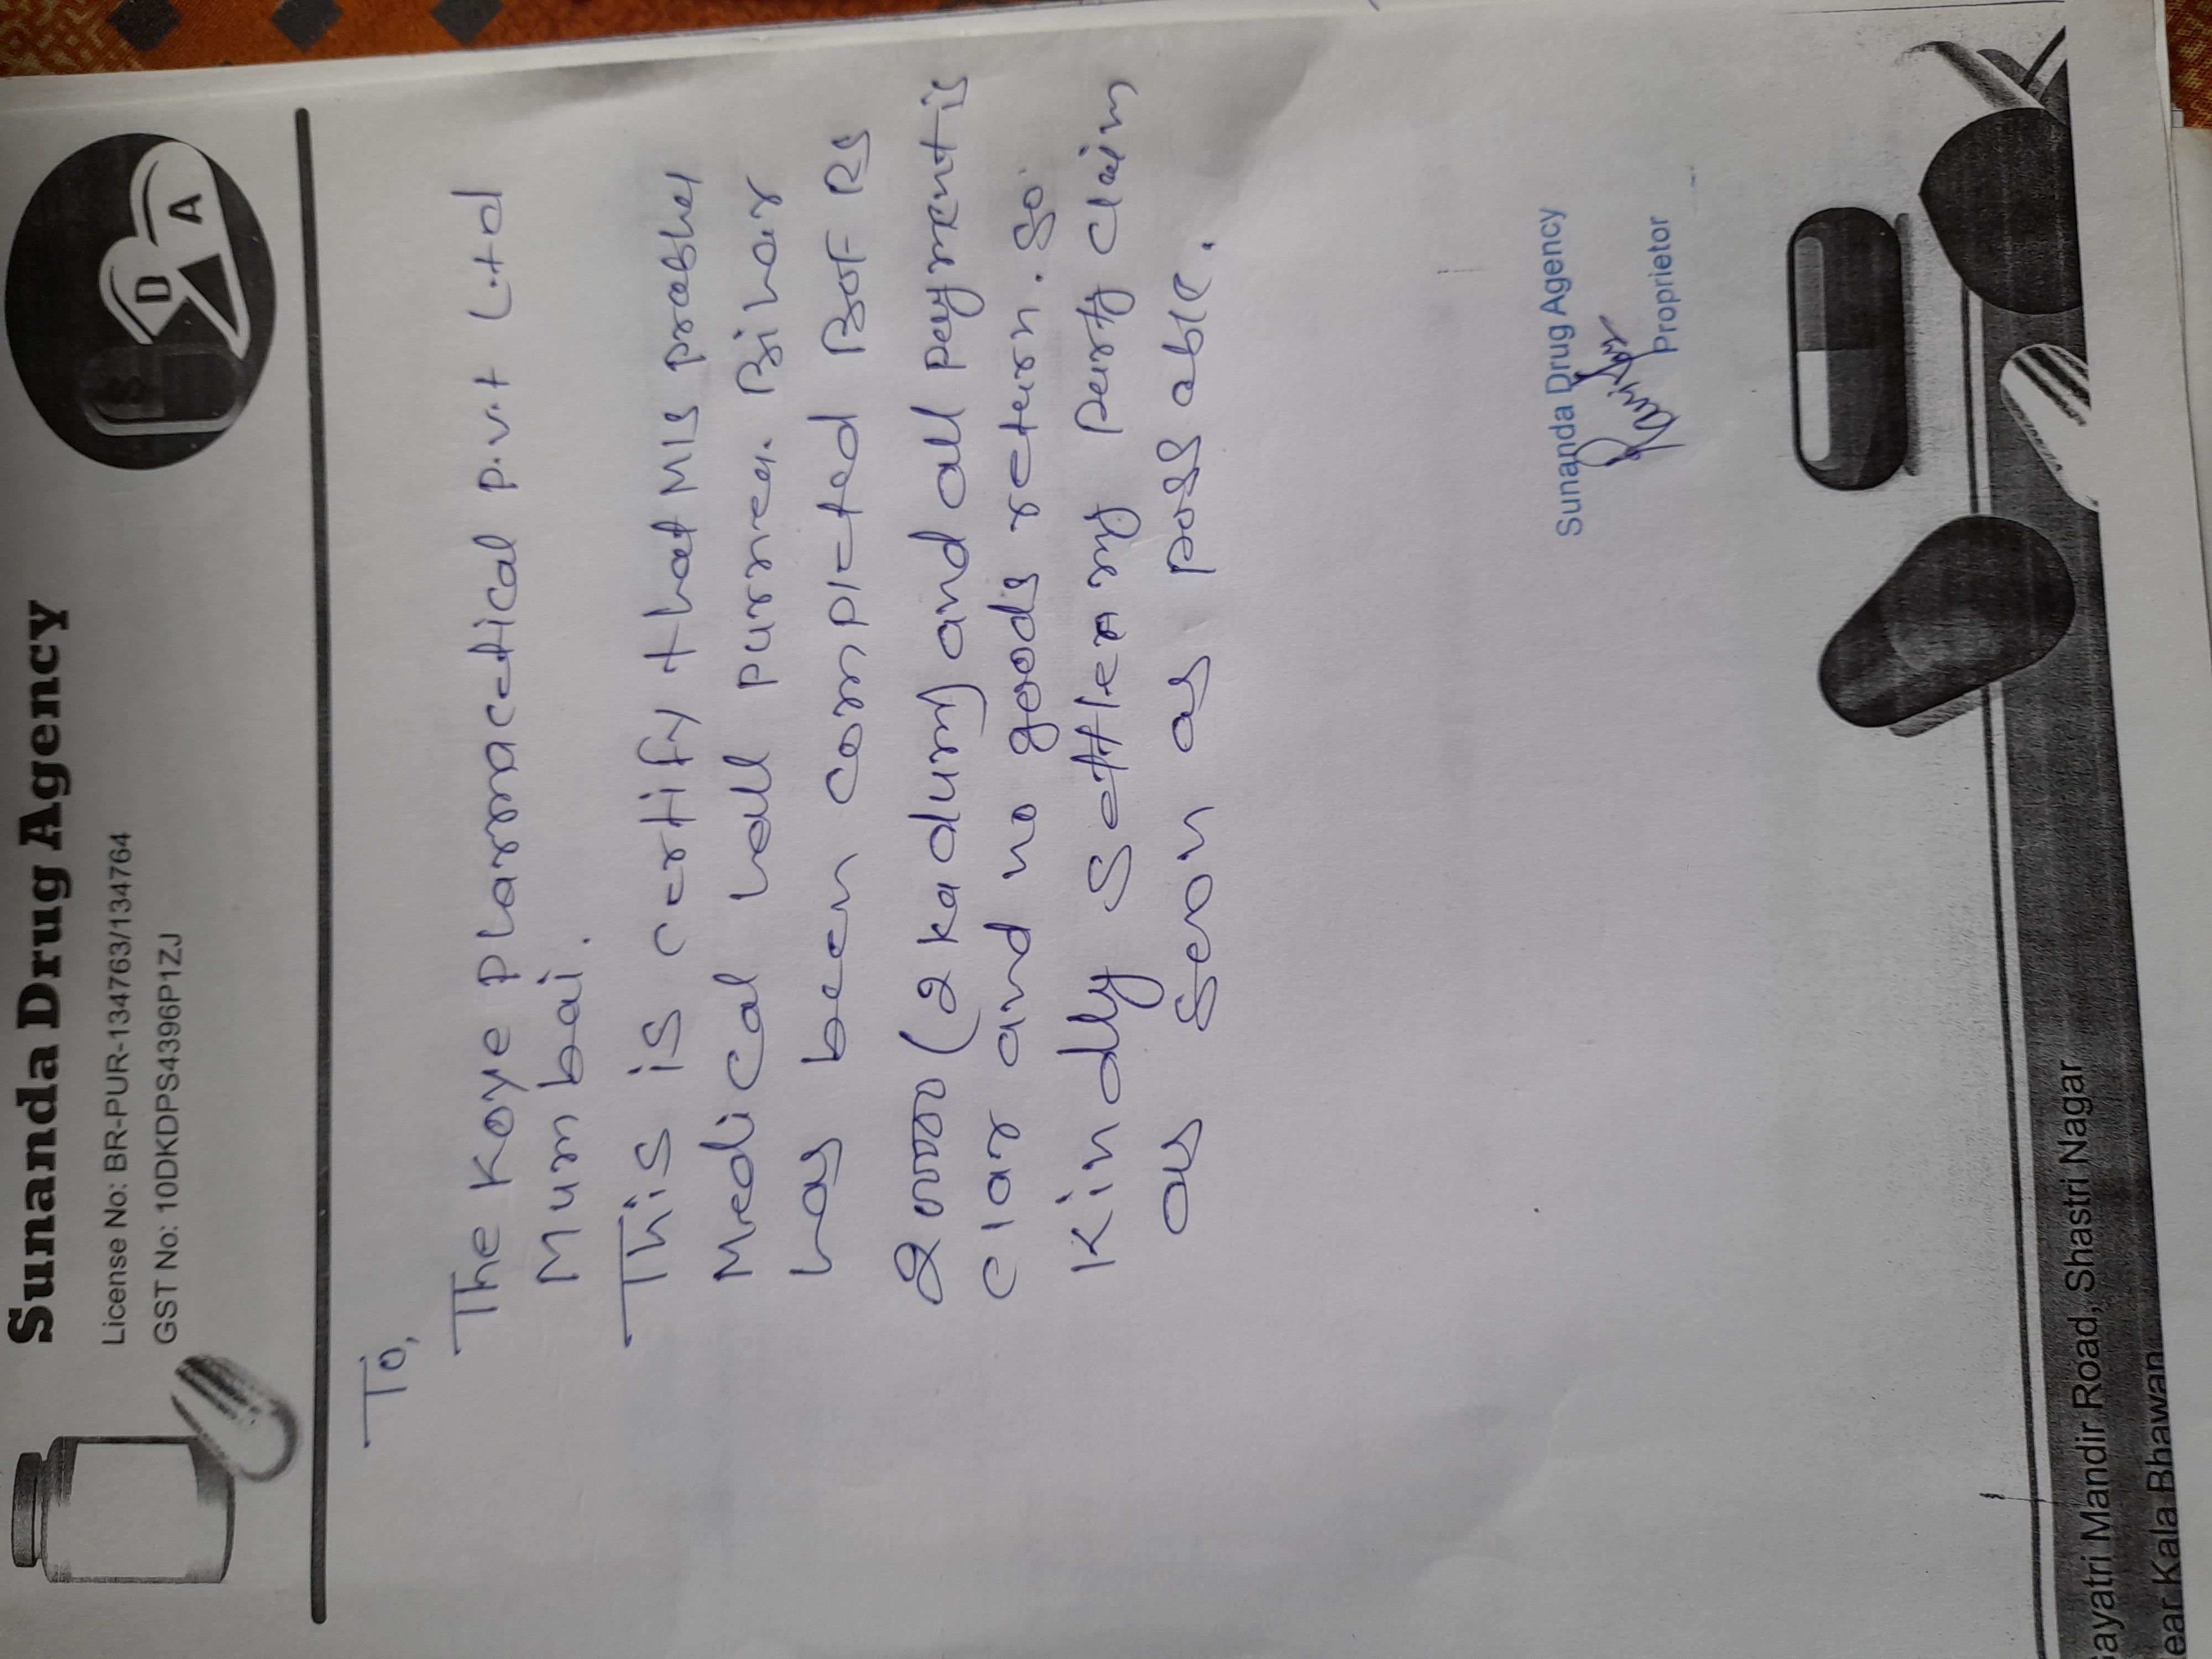 Sunanda Drug Agency
License No: BR-PUR-134763/134764
GST No: 10DKDPS4396P1ZJ
S D A
To,
The Koye pharmacetical p.v.t L.t.d
Mumbai.
This is certify that M/s prabhat
Medical hall purnea. Bihar
has been completed BOF RS
(2 kadum) and all payment is
clar and no goods return. So
Kindly Settlem my party claim
as soon as possable.
Sunanda Drug Agency
Proprietor
Gayatri Mandir Road, Shastri Nagar
ear Kala Bhawan